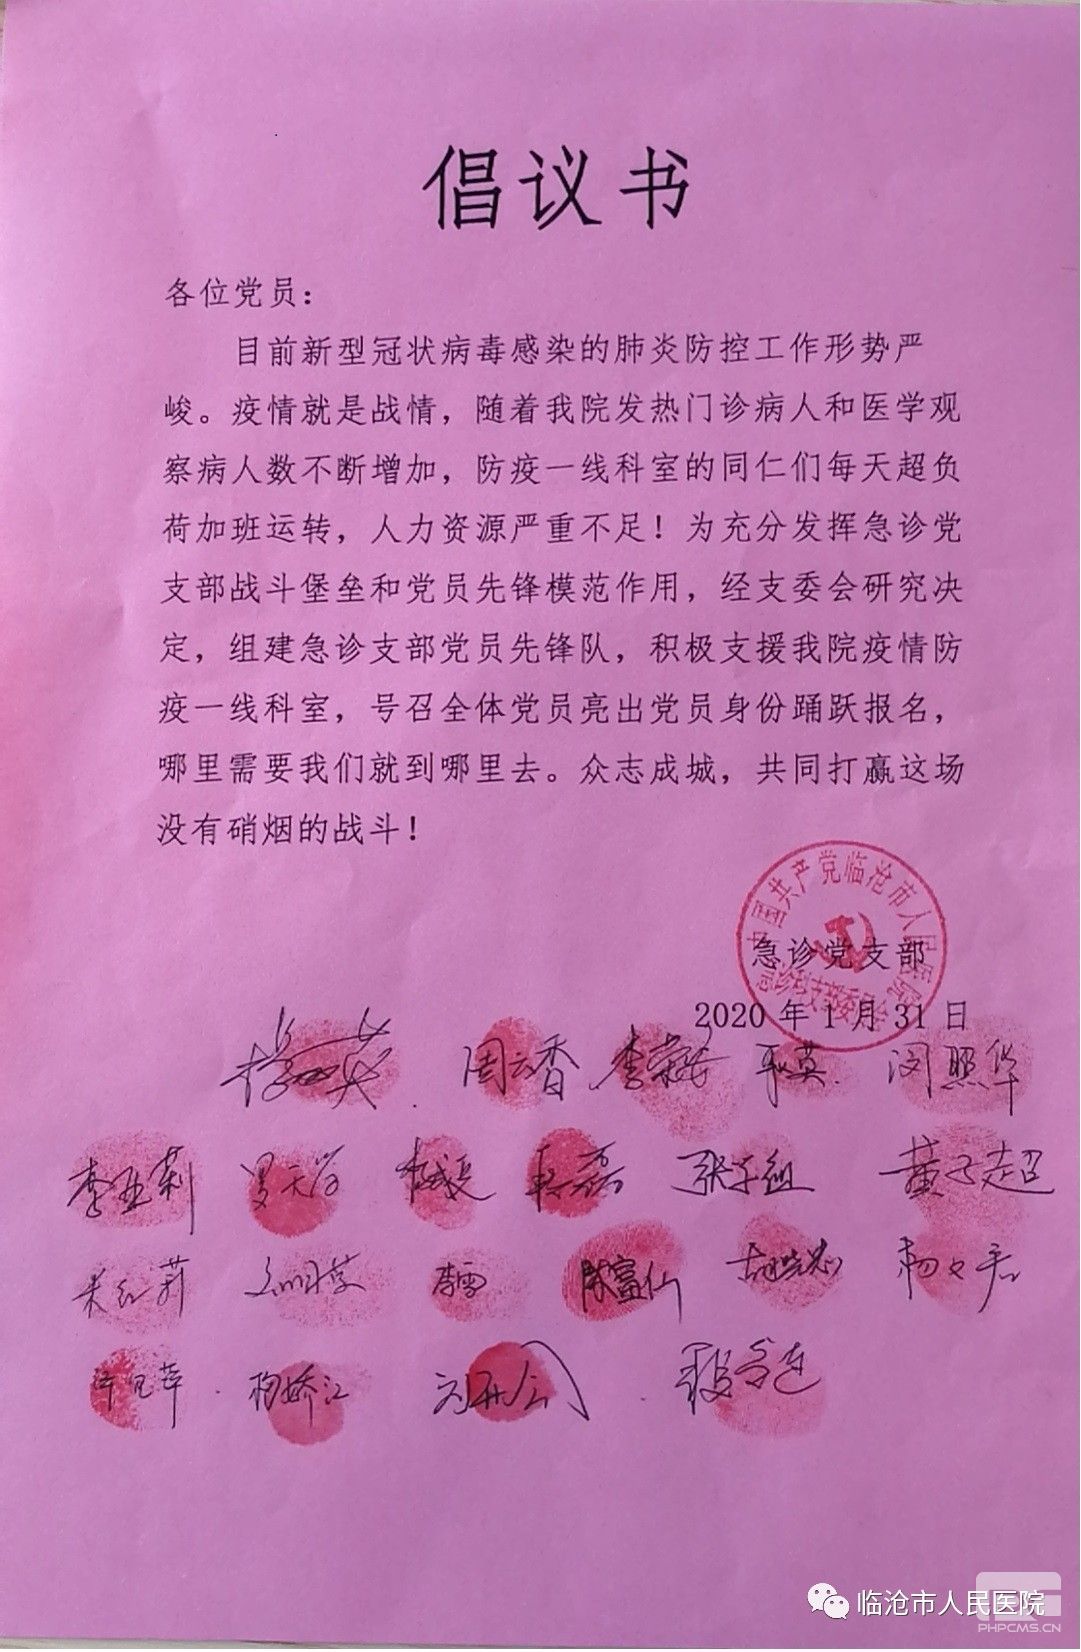 倡议书
各位党员：
目前新型冠状病毒感染的肺炎防控工作形势严
峻。疫情就是战情，随着我院发热门诊病人和医学观
察病人数不断增加，防疫一线科室的同仁们每天超负
荷加班运转，人力资源严重不足！为充分发挥急诊党
支部战斗堡垒和党员先锋模范作用，经支委会研究决
定，组建急诊支部党员先锋队，积极支援我院疫情防
疫一线科室，号召全体党员亮出党员身份踊跃报名，
哪里需要我们就到哪里去。众志成城，共同打赢这场
没有硝烟的战斗！
中国共产党临沧市人民医院
急诊党支部
2020年1月31日
周云香 闵照华
李亚莉 董子超
李雪 陈富仙
临沧市人民医院
PHPCMS.CN